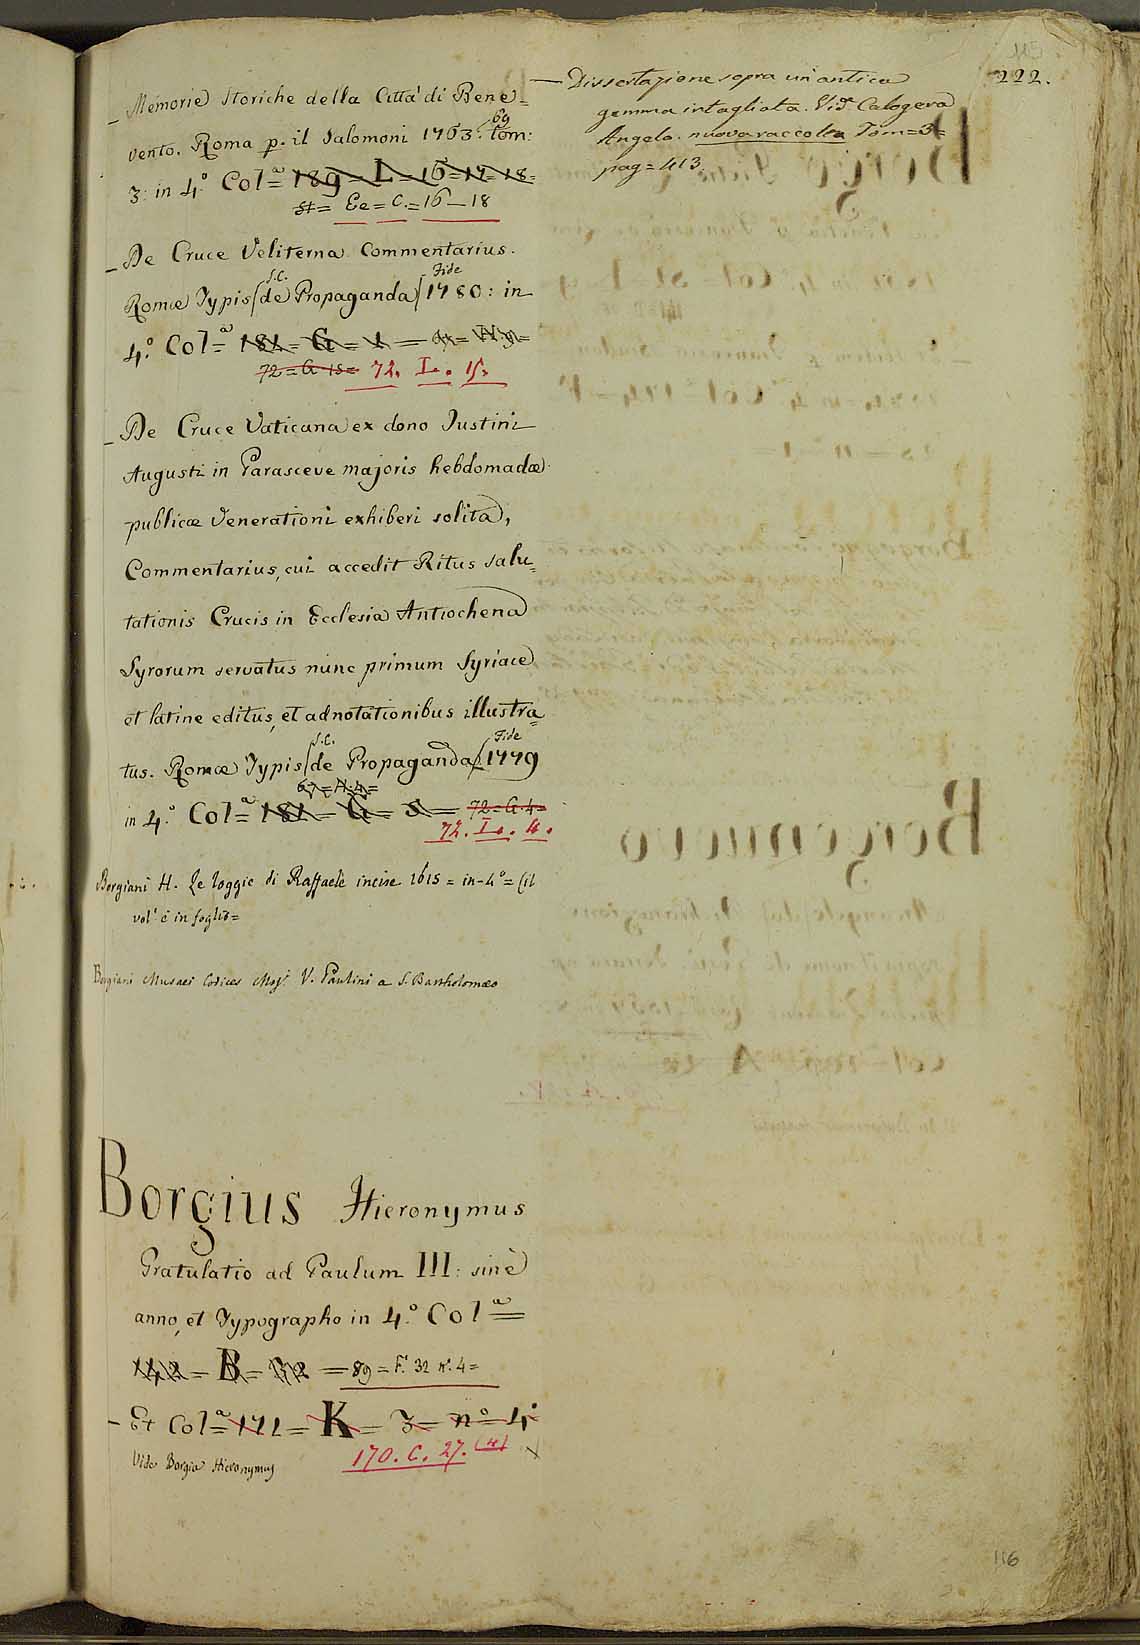 115
222.
_ Memorie Storiche della Città di Bene=
vento. Roma p. il Salomoni 1763. tom:
69
3: in 4.° Col=a 189= L= 16=17=18=
St= Ee= C.= 16_18
_ De Cruce Veliterna Commentarius.
S.C. Fide
Romæ Typis (de Propaganda) 1780: in
4.° Col=a 181= G= 1=
72= G 15= 72. I. 15.
_ De Cruce Vaticana ex dono Justini
Augusti in Parasceve majoris hebdomadæ
publicæ Venerationi exhiberi solita,
Commentarius, cui accedit Ritus salu=
tationis Crucis in Ecclesia Antiochena
Syrorum servatus nunc primum Syriace
et latine editus, et adnotationibus illustra=
S.C. Fide
tus. Romæ Typis (de Propaganda) 1779
67= H.4=
in 4.° Col=a 181= G= 5= 72= G.4=
72. I. 4.
Borgiani H. Le loggie di Raffaele incise 1615= in-4°= (il
vol' è in foglio=
Borgiani Musaei Codices Mss. V. Paulini a S. Bartholomæo
Borgius Hieronymus
Gratulatio ad Paulum III: sine
anno, et Typographo in 4.° Col=a
142= B= 32 = 89= F. 32 n.4=
_ Et Col=a 171= K= 3= n° 4°
170. C. 27. (4)
Vide Borgia Hieronymus
— Dissertazione sopra un'antica
gemma intagliata. Vid. Calogerà
Angelo. nuova raccolta Tom=3=
pag=413.
116